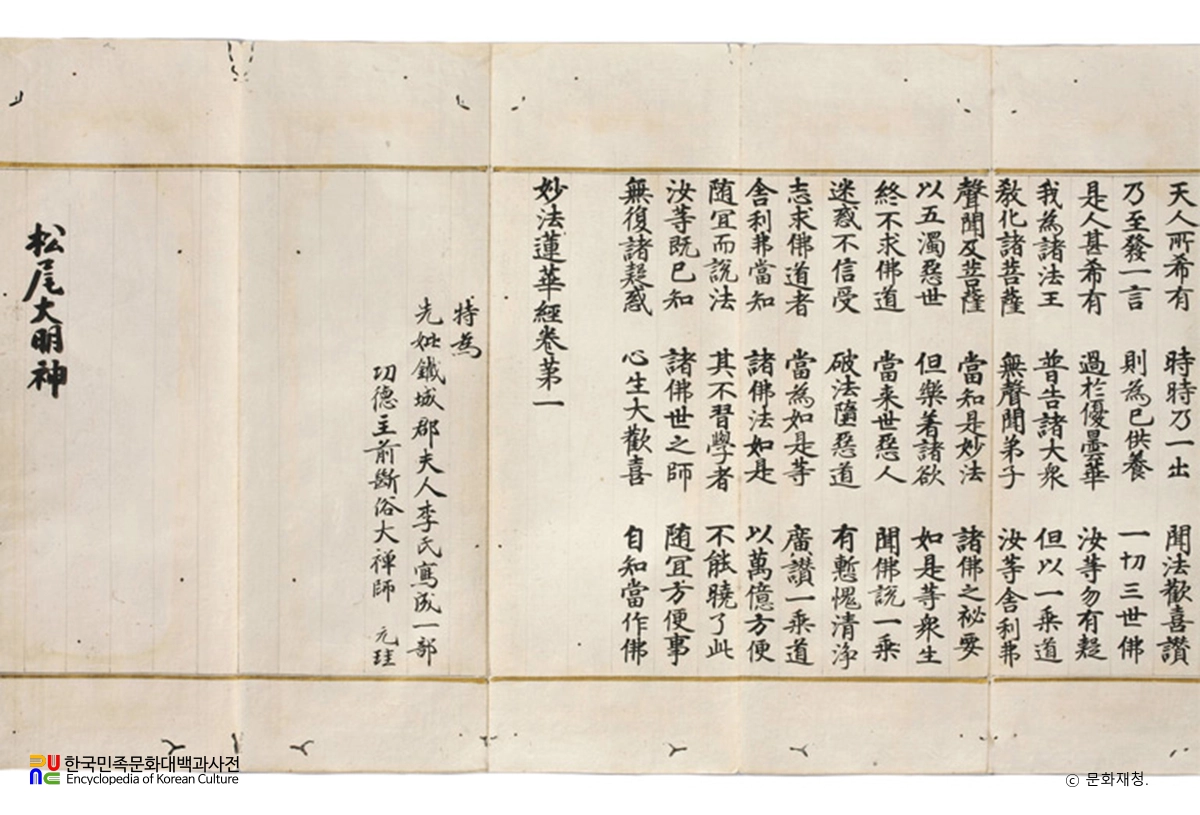 天人所希有 時時乃一出 聞法歡喜讃
乃至發一言 則為已供養 一切三世佛
是人甚希有 過於優曇華 汝等勿有疑
我為諸法王 普告諸大衆 但以一乗道
教化諸菩薩 無聲聞弟子 汝等舍利弗
聲聞及菩薩 當知是妙法 諸佛之祕要
以五濁惡世 但樂著諸欲 如是等衆生
終不求佛道 當来世惡人 聞佛説一乗
迷惑不信受 破法墮惡道 有慙愧清淨
志求佛道者 當為如是等 廣讃一乗道
舍利弗當知 諸佛法如是 以萬億方便
随宜而說法 其不習學者 不能曉了此
汝等既已知 諸佛世之師 随宜方便事
無復諸疑惑 心生大歡喜 自知當作佛
妙法蓮華經卷第一
特為
先妣鐵城郡夫人李氏寫成一部
功德主前斷俗大禅師 元珪
松尾大明神
한국민족문화대백과사전
Encyclopedia of Korean Culture
ⓒ 문화재청.